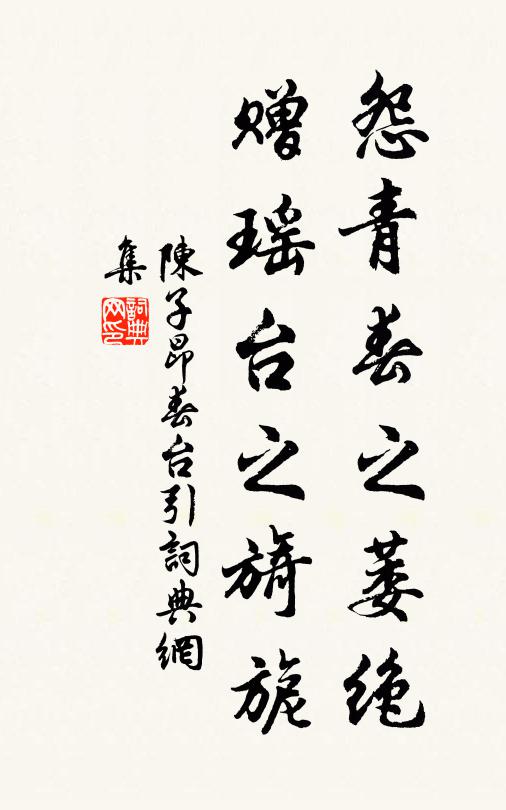 怨青春之萎绝
赠瑶台之旖旎
陳子昂春台引詞典網
集
詞典网印